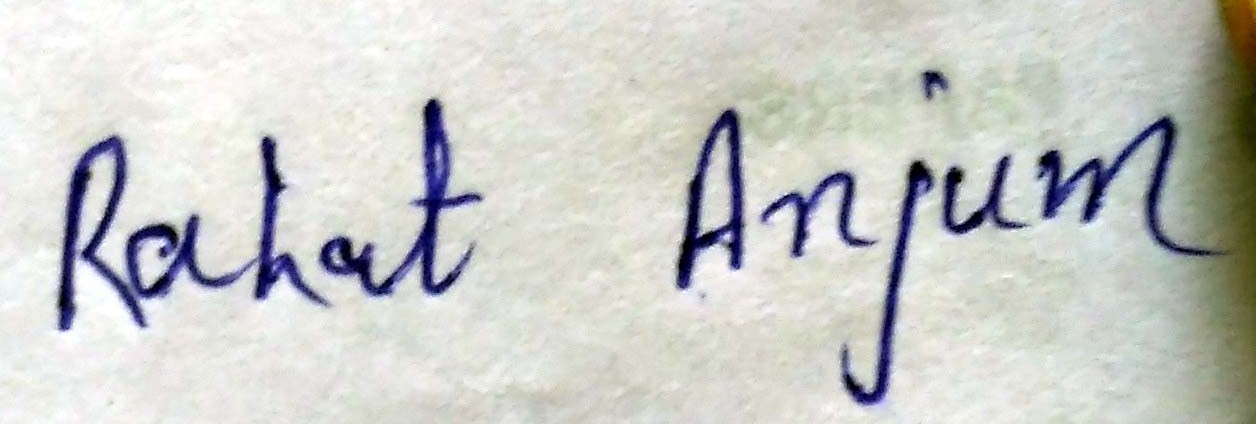 Rahat Anjum